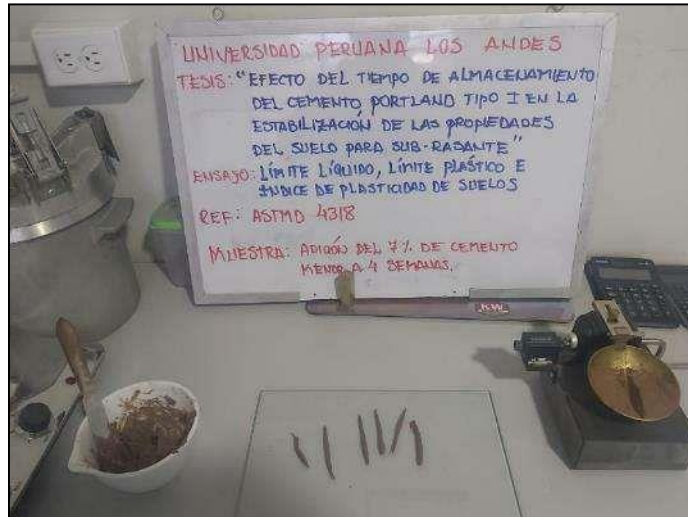 UNIVERSIDAD PERUANA LOS ANDES
TESIS: "EFECTO DEL TIEMPO DE ALMACENAMIENTO
DEL CEMENTO PORTLAND TIPO I EN LA
ESTABILIZACIÓN DE LAS PROPIEDADES
DEL SUELO PARA SUB-RASANTE"
ENSAYO: LÍMITE LÍQUIDO, LÍMITE PLÁSTICO E
ÍNDICE DE PLASTICIDAD DE SUELOS
REF: ASTMD 4318
MUESTRA: ADICIÓN DEL 7% DE CEMENTO
MENOR A 4 SEMANAS.
KW